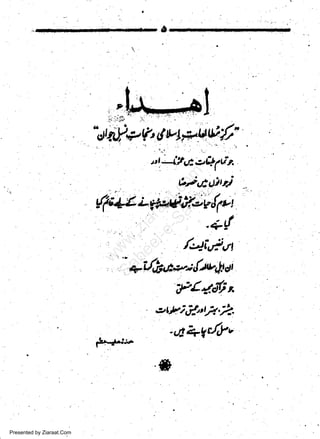 ۵
اهداء
"مرکز مطالعات اسلامی و نجات نسل جوان"
جو تمام طبقات میں — اور
نوجوانوں میں
اسلام کی حیات بخش تعلیمات پہنچانے کے لئے قائم
کیا گیا ہے۔
اس نفیس تالیف کو
ان اہل مطالعہ کی خدمت میں پیش کرتا ہے
جو قرآن مجید کے متعلق
بیشتر، بہتر اور عمیق تر معلومات
حاصل کرنا چاہتے ہیں۔
حوزہ علمیہ قم
Presented by Ziaraat.Com